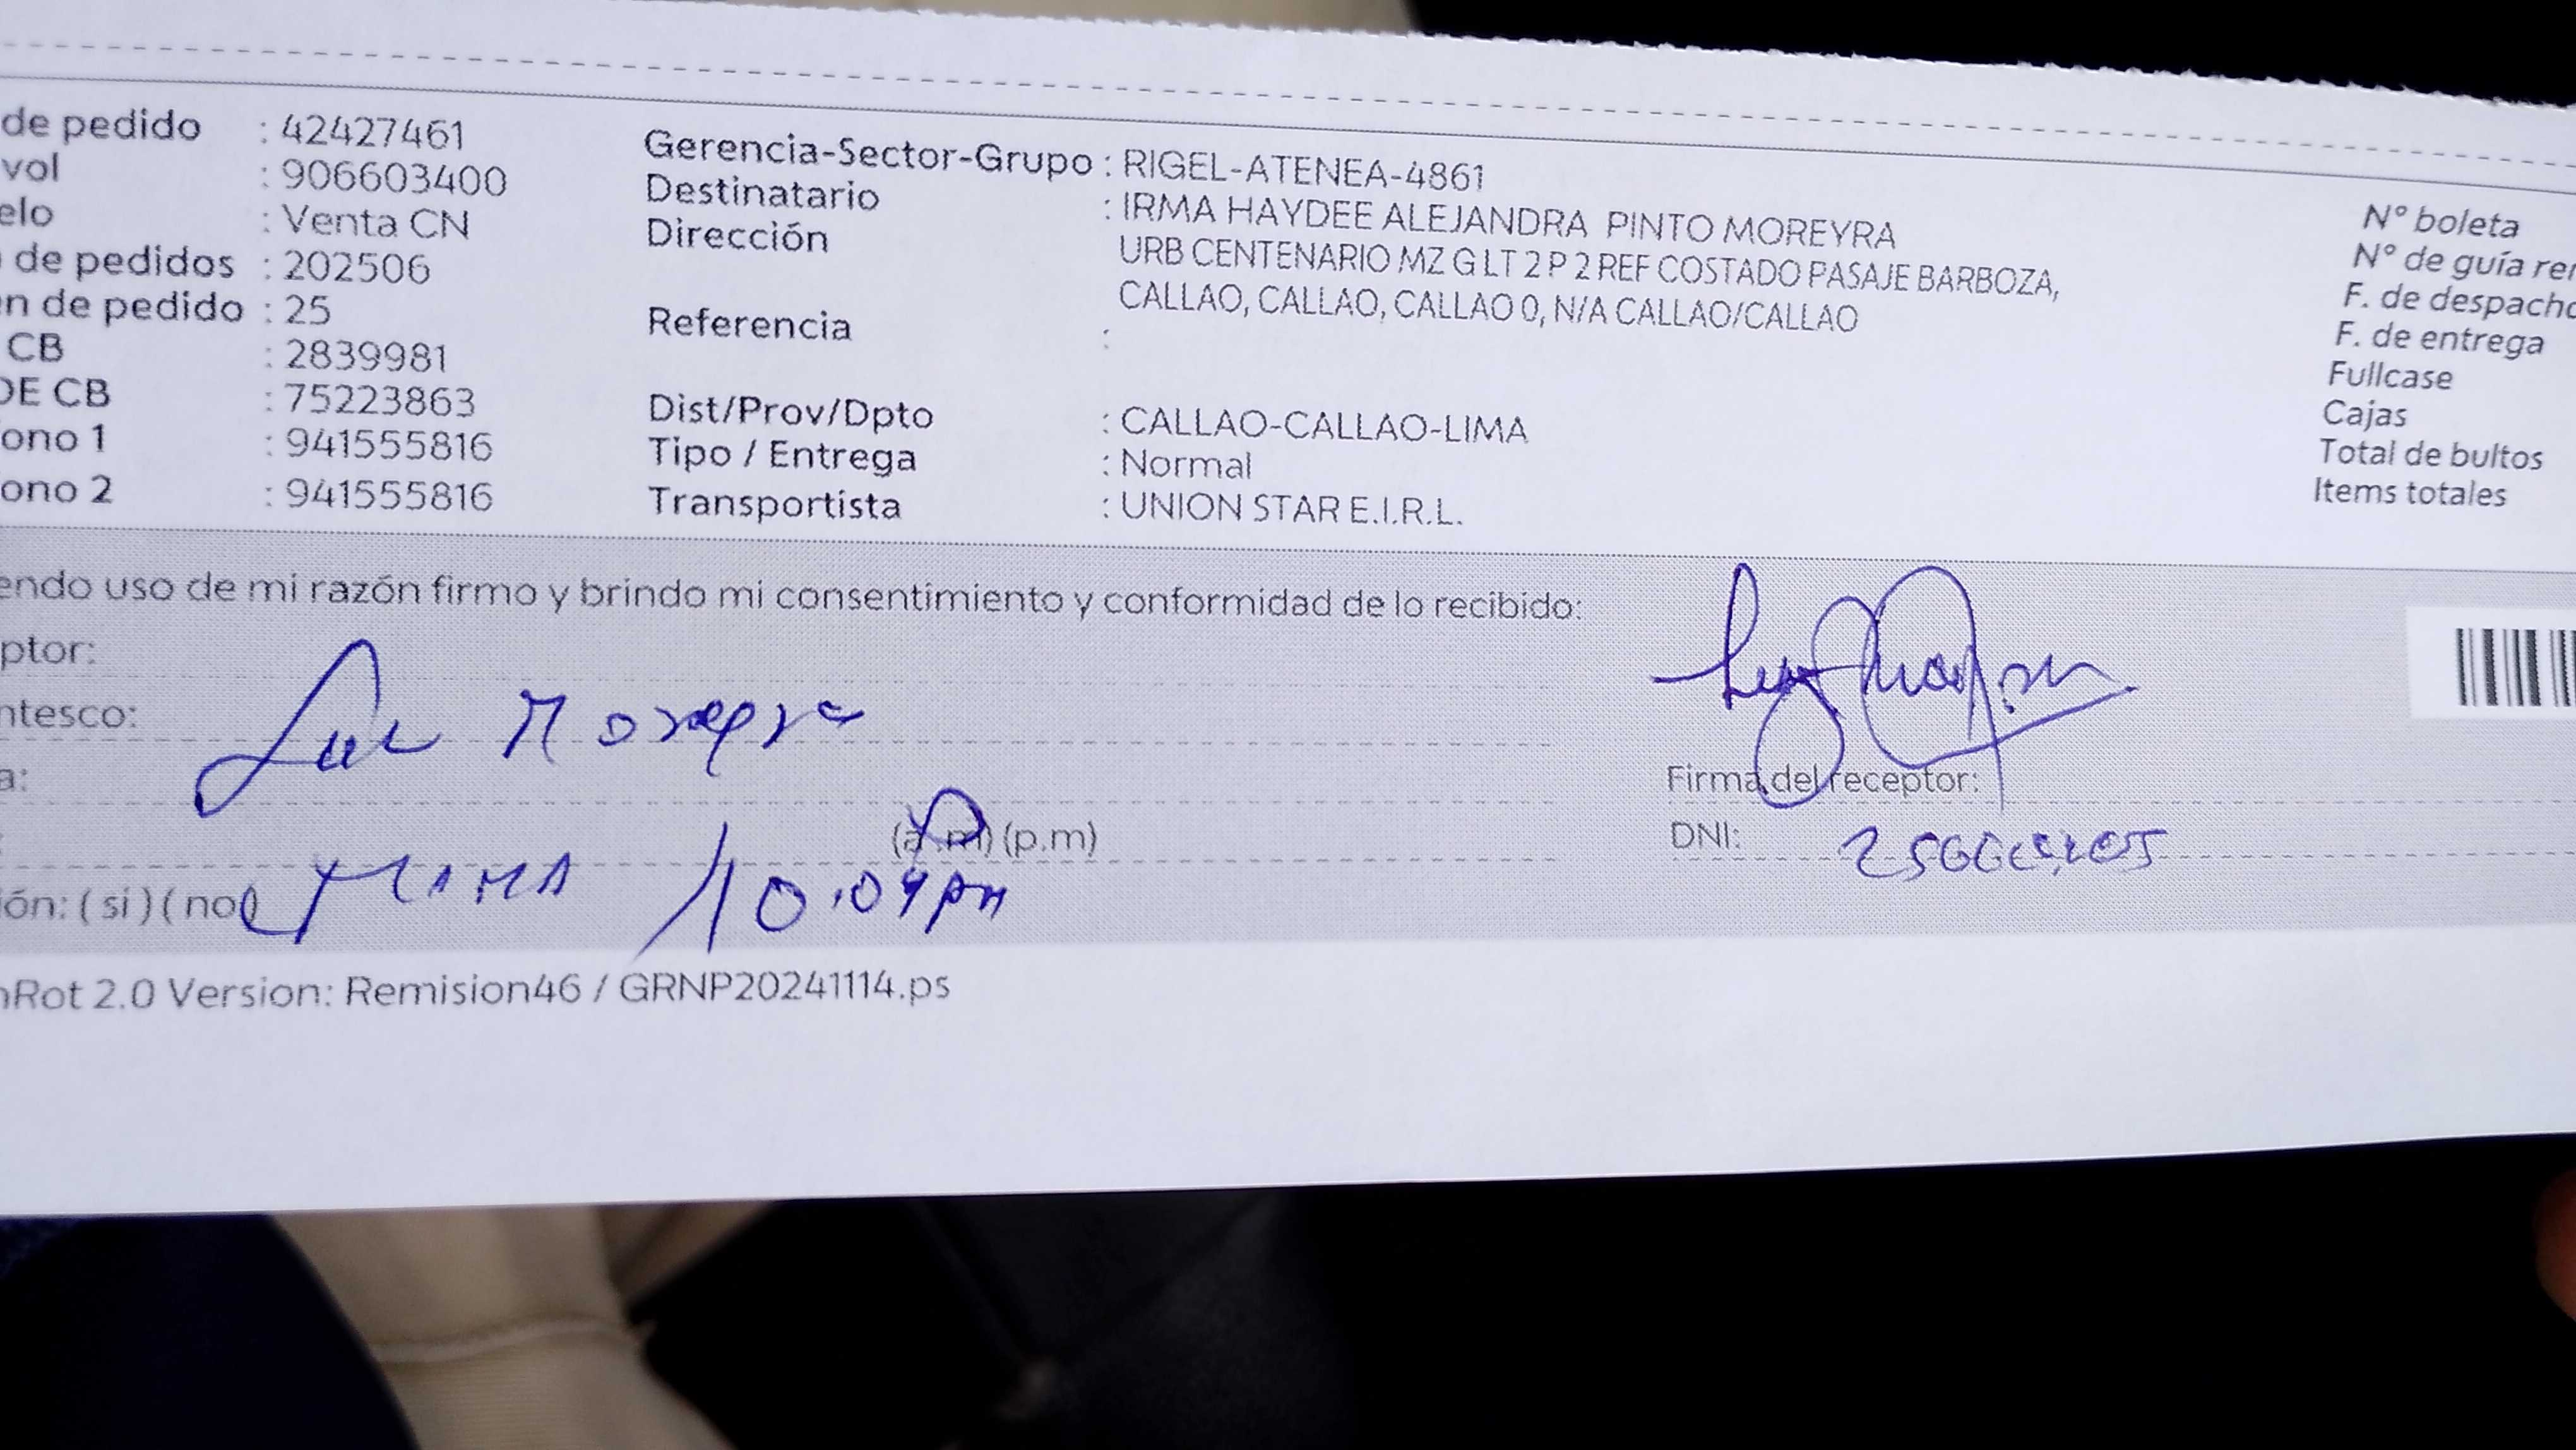 de pedido : 42427461
vol : 906603400
elo : Venta CN
de pedidos : 202506
en de pedido : 25
CB : 2839981
DE CB : 75223863
ono 1 : 941555816
ono 2 : 941555816
Gerencia-Sector-Grupo : RIGEL-ATENEA-4861
Destinatario : IRMA HAYDEE ALEJANDRA PINTO MOREYRA
Dirección URB CENTENARIO MZ G LT 2 P 2 REF COSTADO PASAJE BARBOZA,
CALLAO, CALLAO, CALLAO 0, N/A CALLAO/CALLAO
Referencia :
Dist/Prov/Dpto : CALLAO-CALLAO-LIMA
Tipo / Entrega : Normal
Transportista : UNION STAR E.I.R.L.
N° boleta
N° de guía rem
F. de despacho
F. de entrega
Fullcase
Cajas
Total de bultos
Items totales
endo uso de mi razón firmo y brindo mi consentimiento y conformidad de lo recibido:
ptor:
ntesco: Moreyra
a:
(a.m) (p.m)
ión: ( si ) ( no ) 10:04 pm
Firma del receptor:
DNI:
nRot 2.0 Version: Remision46 / GRNP20241114.ps